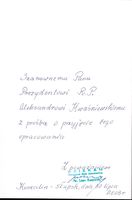 Szanownemu Panu
Prezydentowi R.P.
Aleksandrowi Kwaśniewskiemu
z prośbą o przyjęcie tego
opracowania
Z poważaniem
Koszalin - Słupsk, dnia, 20 lipca